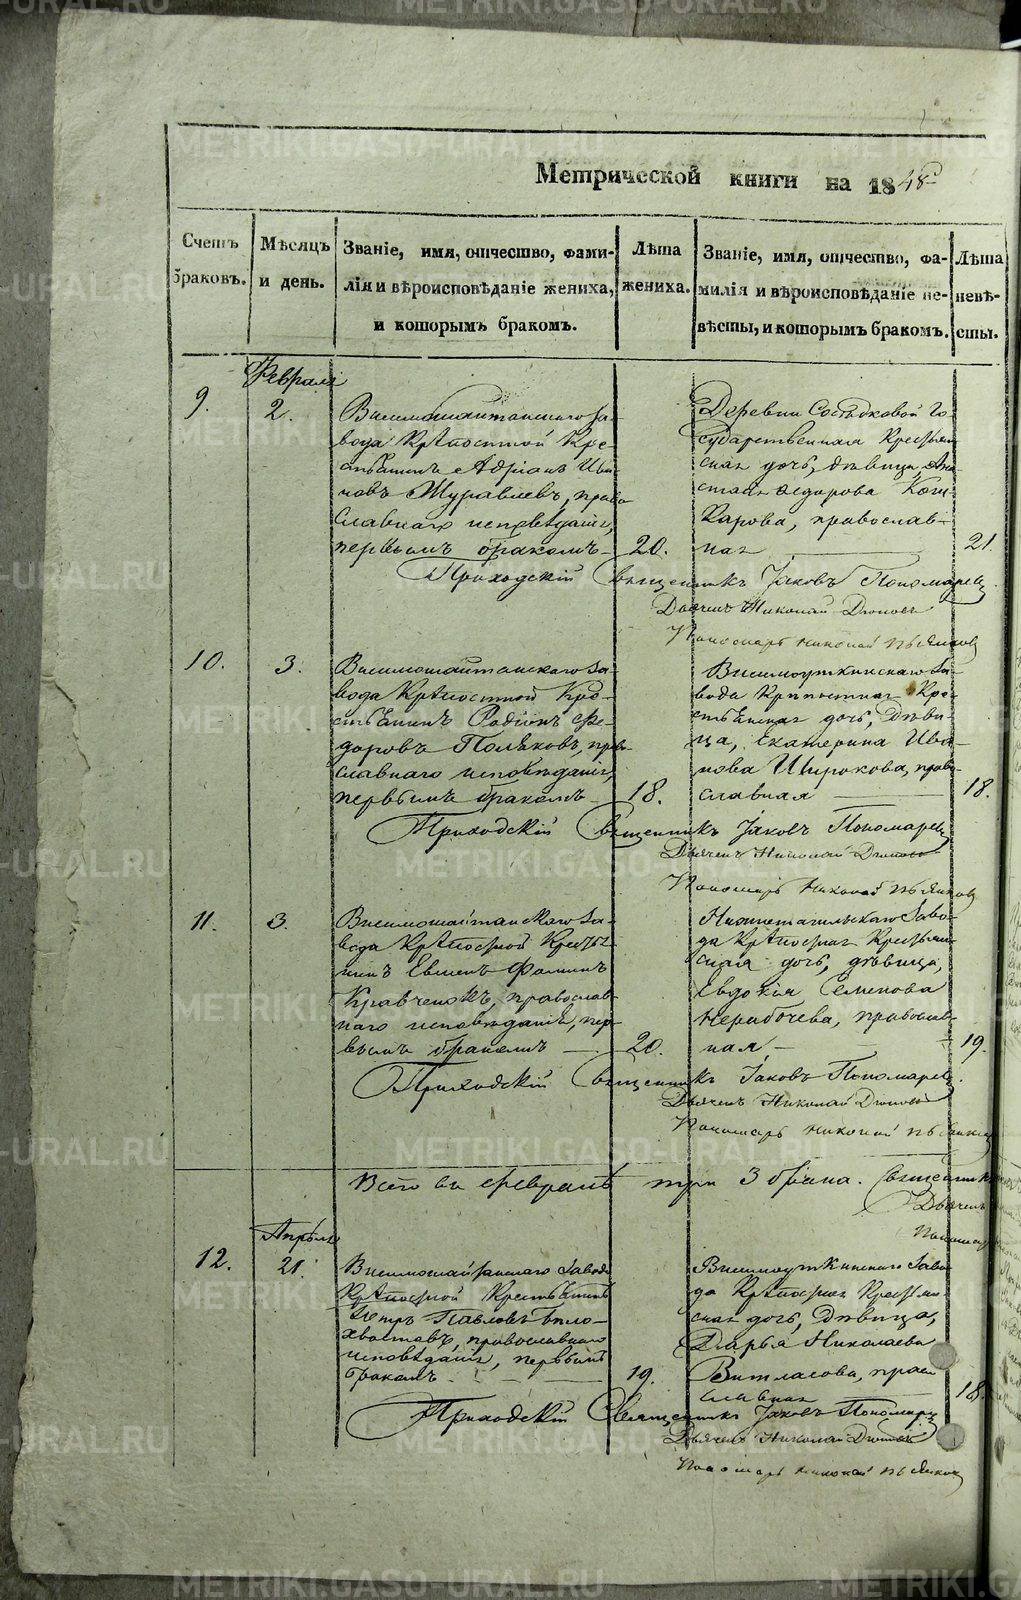 Метрической книги на 1848
Счетъ браковъ.
Мѣсяцъ и день.
Званіе, имя, отчество, фами-
лія и вѣроисповѣданіе жениха,
и которымъ бракомъ.
Лѣта жениха.
Званіе, имя, отчество, фа-
милія и вѣроисповѣданіе не-
вѣсты, и которымъ бракомъ.
Лѣта невѣ-
сты.
Февраля
9.
2.
Висимошайтанскаго За-
вода Крѣпостной Кре-
стьянинъ Адріанъ Ива-
новъ Журавлевъ, право
славнаго исповѣданія,
первымъ бракомъ
20.
Деревни Сосѣдковой Го-
сударственная Крестьян
ская дочь, дѣвица Ана-
стасія Ѳедорова
православ-
ная
21.
Приходскій Священникъ Іаковъ Пономаревъ.
Дьячекъ Николай
Пономарь Николай
10.
3.
Висимошайтанскаго За-
вода Крѣпостной Кре-
стьянинъ Родіонъ Ѳе-
доровъ Поляковъ, право
славнаго исповѣданія,
первымъ бракомъ
18.
Висимоуткинскаго За-
вода Крѣпостная Кре-
стьянская дочь, Дѣви-
ца, Екатерина Ива-
нова Широкова, право-
славная
18.
Приходскій Священникъ Іаковъ Пономаревъ
Дьячекъ Николай
Пономарь Николай
11.
3.
Висимошайтанскаго За-
вода Крѣпостной Крестья
нинъ Евгенъ Фоминъ
Кравченокъ, православ-
наго исповѣданія, пер-
вымъ бракомъ
20.
Нижнетагильскаго Заво-
да Крѣпостная Крестьян-
ская дочь, дѣвица,
Евдокія Семенова
Нерабочева, православ-
ная,
19.
Приходскій Священникъ Іаковъ Пономаревъ.
Дьячекъ Николай
Пономарь Николай
Всего въ Февралѣ три 3 брака. Священникъ
Дьячекъ
Пономарь
Апрѣля
12.
21.
Висимошайтанскаго Завода
Крѣпостной Крестьянинъ
Петръ Павловъ Бѣло-
хвостовъ, православнаго
исповѣданія, первымъ
бракомъ
19.
Висимоуткинскаго Заво-
да Крѣпостная Крестьян-
ская дочь, Дѣвица,
Дарья Николаева
право
славная
18.
Приходскій Священникъ Іаковъ Пономаревъ
Дьячекъ Николай
Пономарь Николай
METRIKI.GASO-URAL.RU